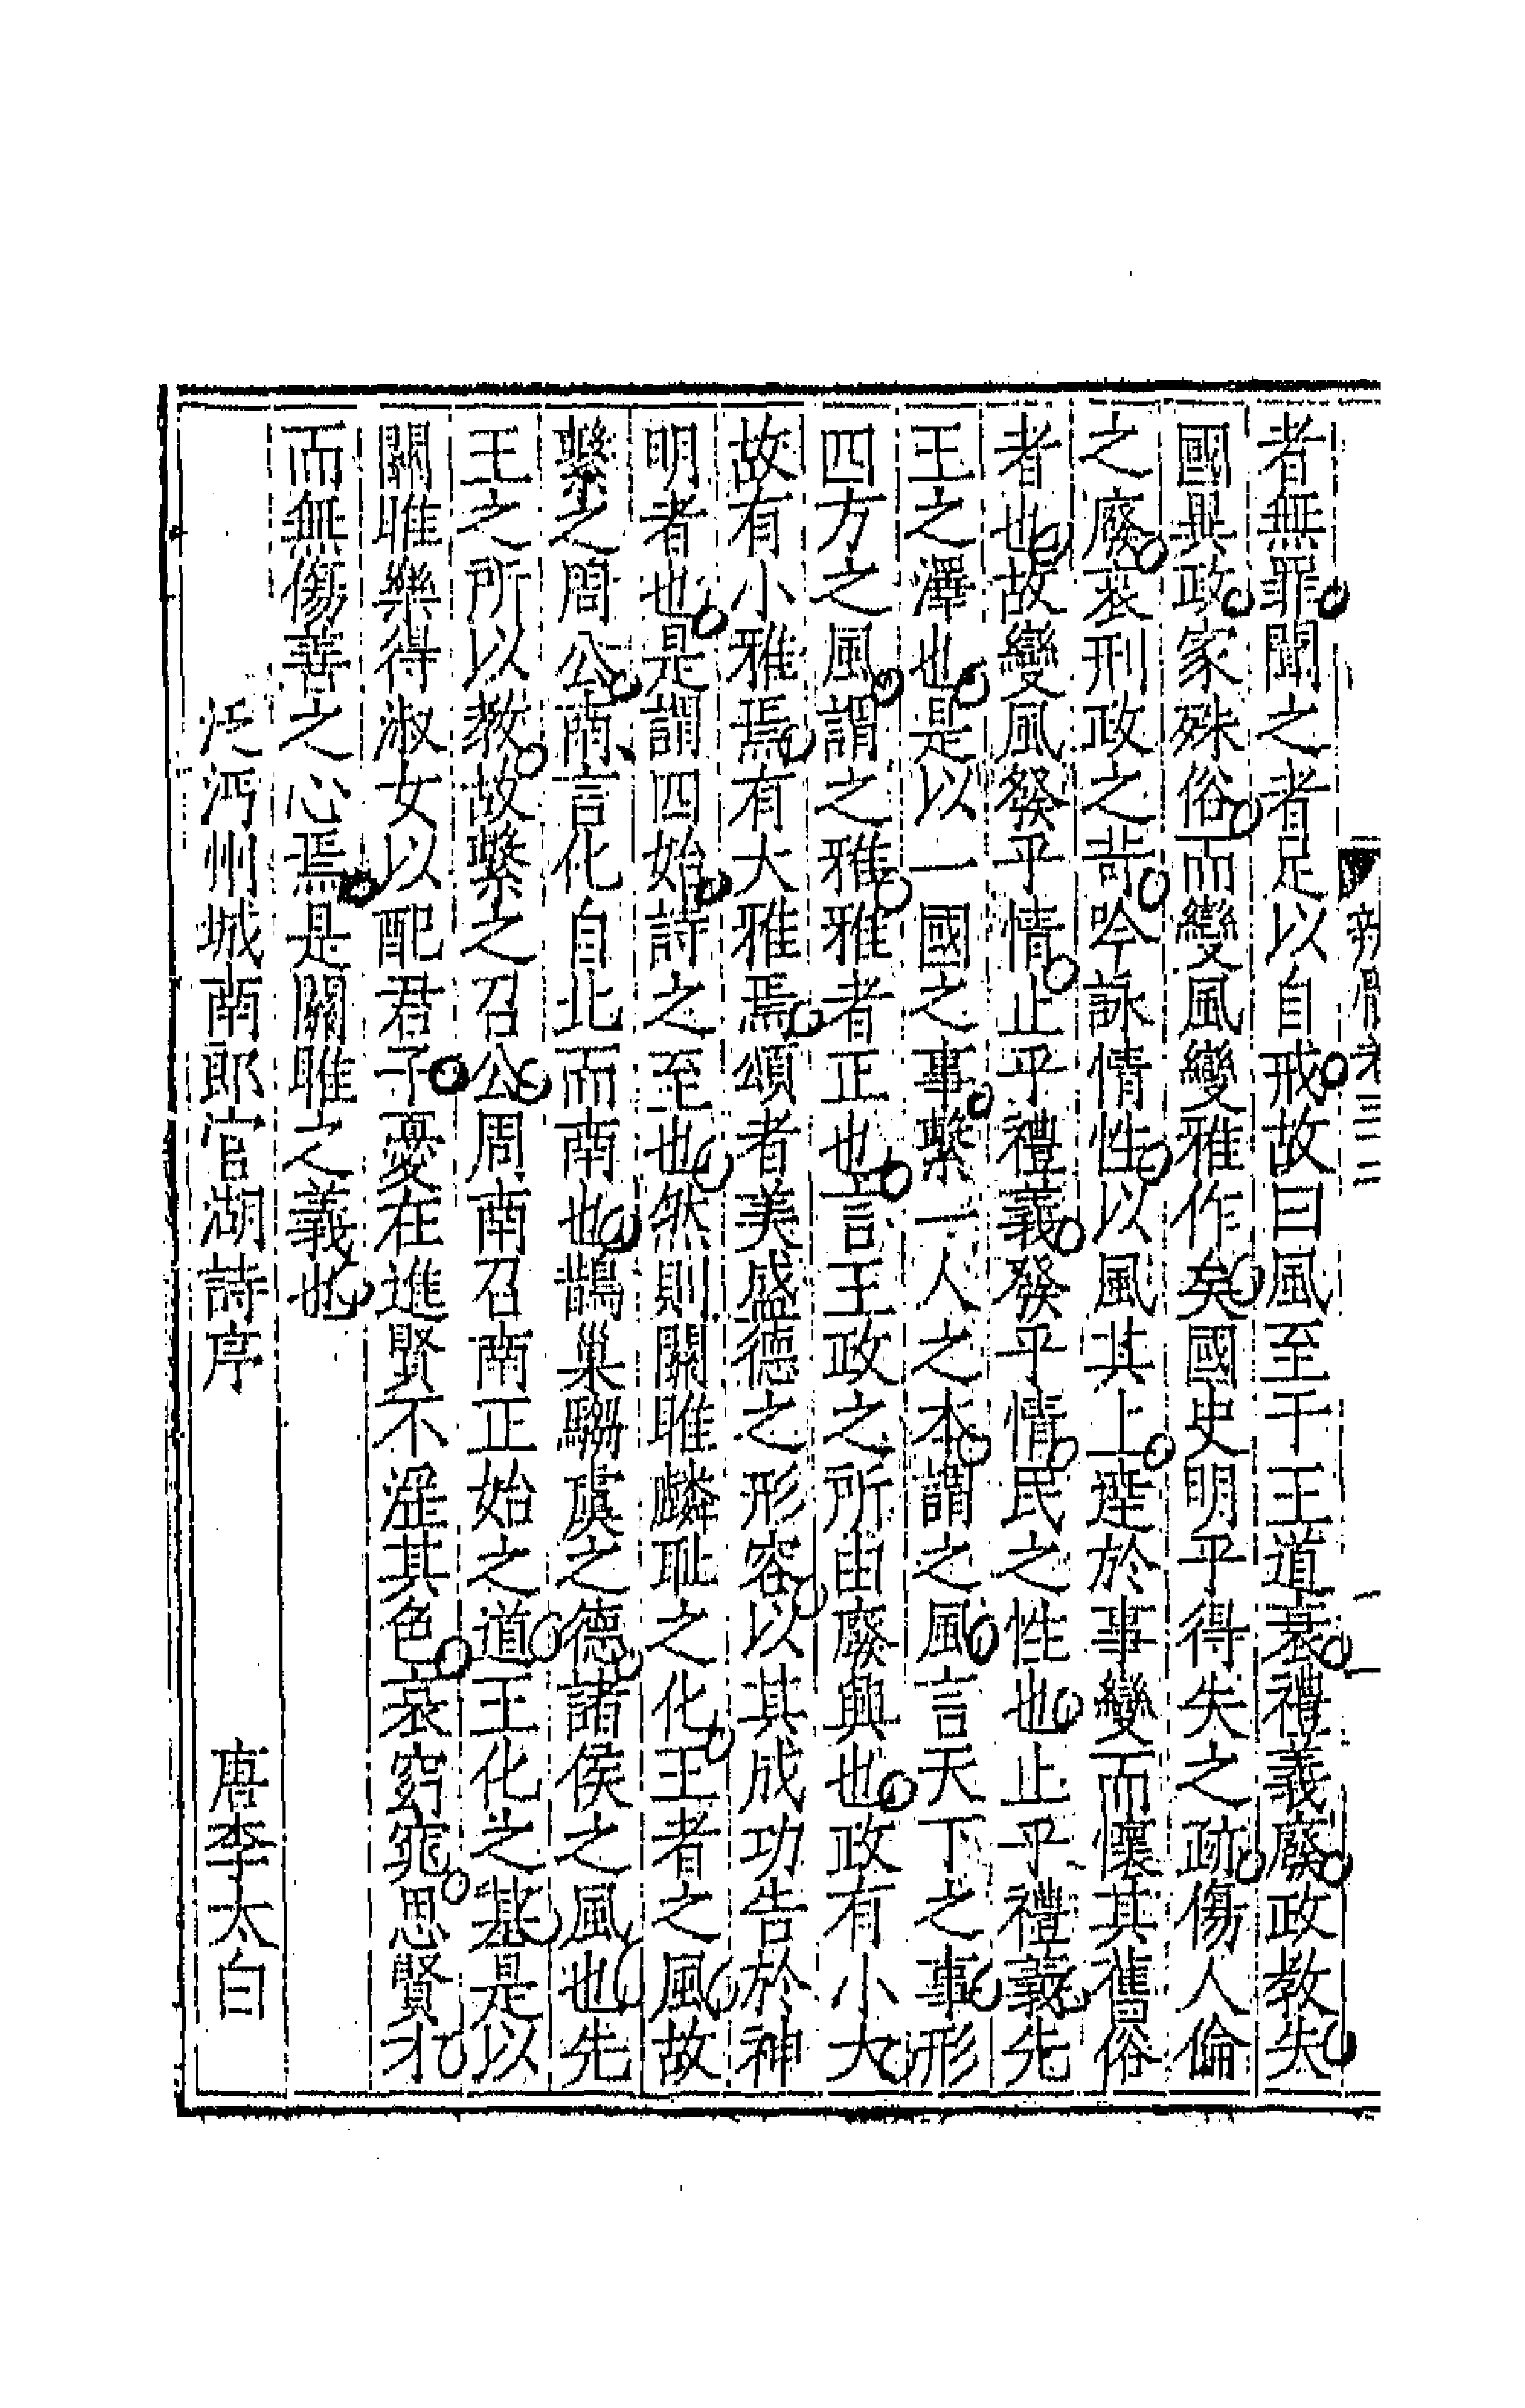 者無罪聞之者足以自戒故曰風至于王道衰禮義廢政教失
國異政家殊俗而變風變雅作矣國史明乎得失之跡傷人倫
之廢哀刑政之苛吟詠情性以風其上達於事變而懷其舊俗
者也故變風發乎情止乎禮義發乎情民之性也止乎禮義先
王之澤也是以一國之事繫一人之本謂之風言天下之事形
四方之風謂之雅雅者正也言王政之所由廢興也政有小大
故有小雅焉有大雅焉頌者美盛德之形容以其成功告於神
明者也是謂四始詩之至也然則關雎麟趾之化王者之風故
繫之周公南言化自北而南也鵲巢騶虞之德諸侯之風也先
王之所以教故繫之召公周南召南正始之道王化之基是以
關雎樂得淑女以配君子憂在進賢不淫其色哀窈窕思賢才
而無傷善之心焉是關雎之義也
泛沔州城南郎官湖詩序 唐李太白